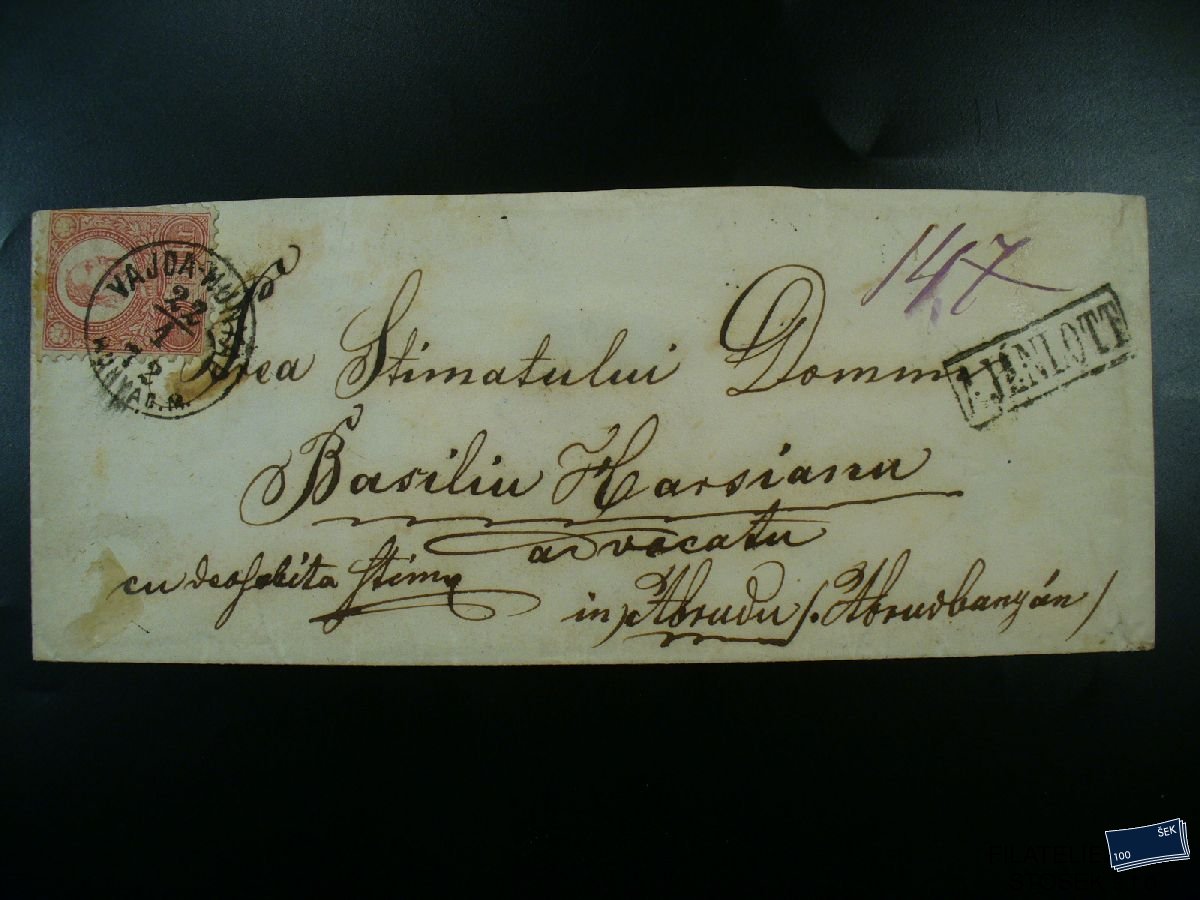 147
AJÁNLOTT
VAJDA-HUNYAD
22/1
72
HUNYAD.M.
Prea Stimatului Domnu
Basiliu Harsianu
advocatu
cu deosebita stima
in Abrudu /: Abrudbanyán /
FILATELIE
100 ŠEK